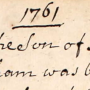 1761
the Son of
ham was b